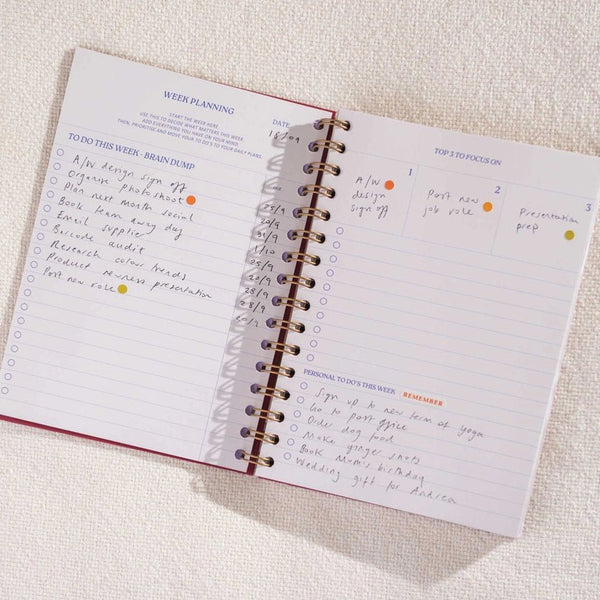 WEEK PLANNING
START THE WEEK HERE
USE THIS TO DECIDE WHAT MATTERS THIS WEEK
ADD EVERYTHING YOU HAVE ON YOUR MIND
THEN, PRIORITISE AND MOVE YOUR TO DO'S TO YOUR DAILY PLANS.
DATE
18/09
TO DO THIS WEEK - BRAIN DUMP
A/W design sign off
Organise photoshoot
Plan next month social
Book team away day
Email supplier
Barcode audit
Research colour trends
Product newness presentation
Post new role
1/10
28/9
28/9
TOP 3 TO FOCUS ON
1
A/W
design
sign off
2
Post new
job role
3
Presentation
prep
PERSONAL TO DO'S THIS WEEK
REMEMBER
Sign up to new term of yoga
Go to post office
Order dog food
Make ginger
Book Mum's birthday
Wedding gift for Andrea